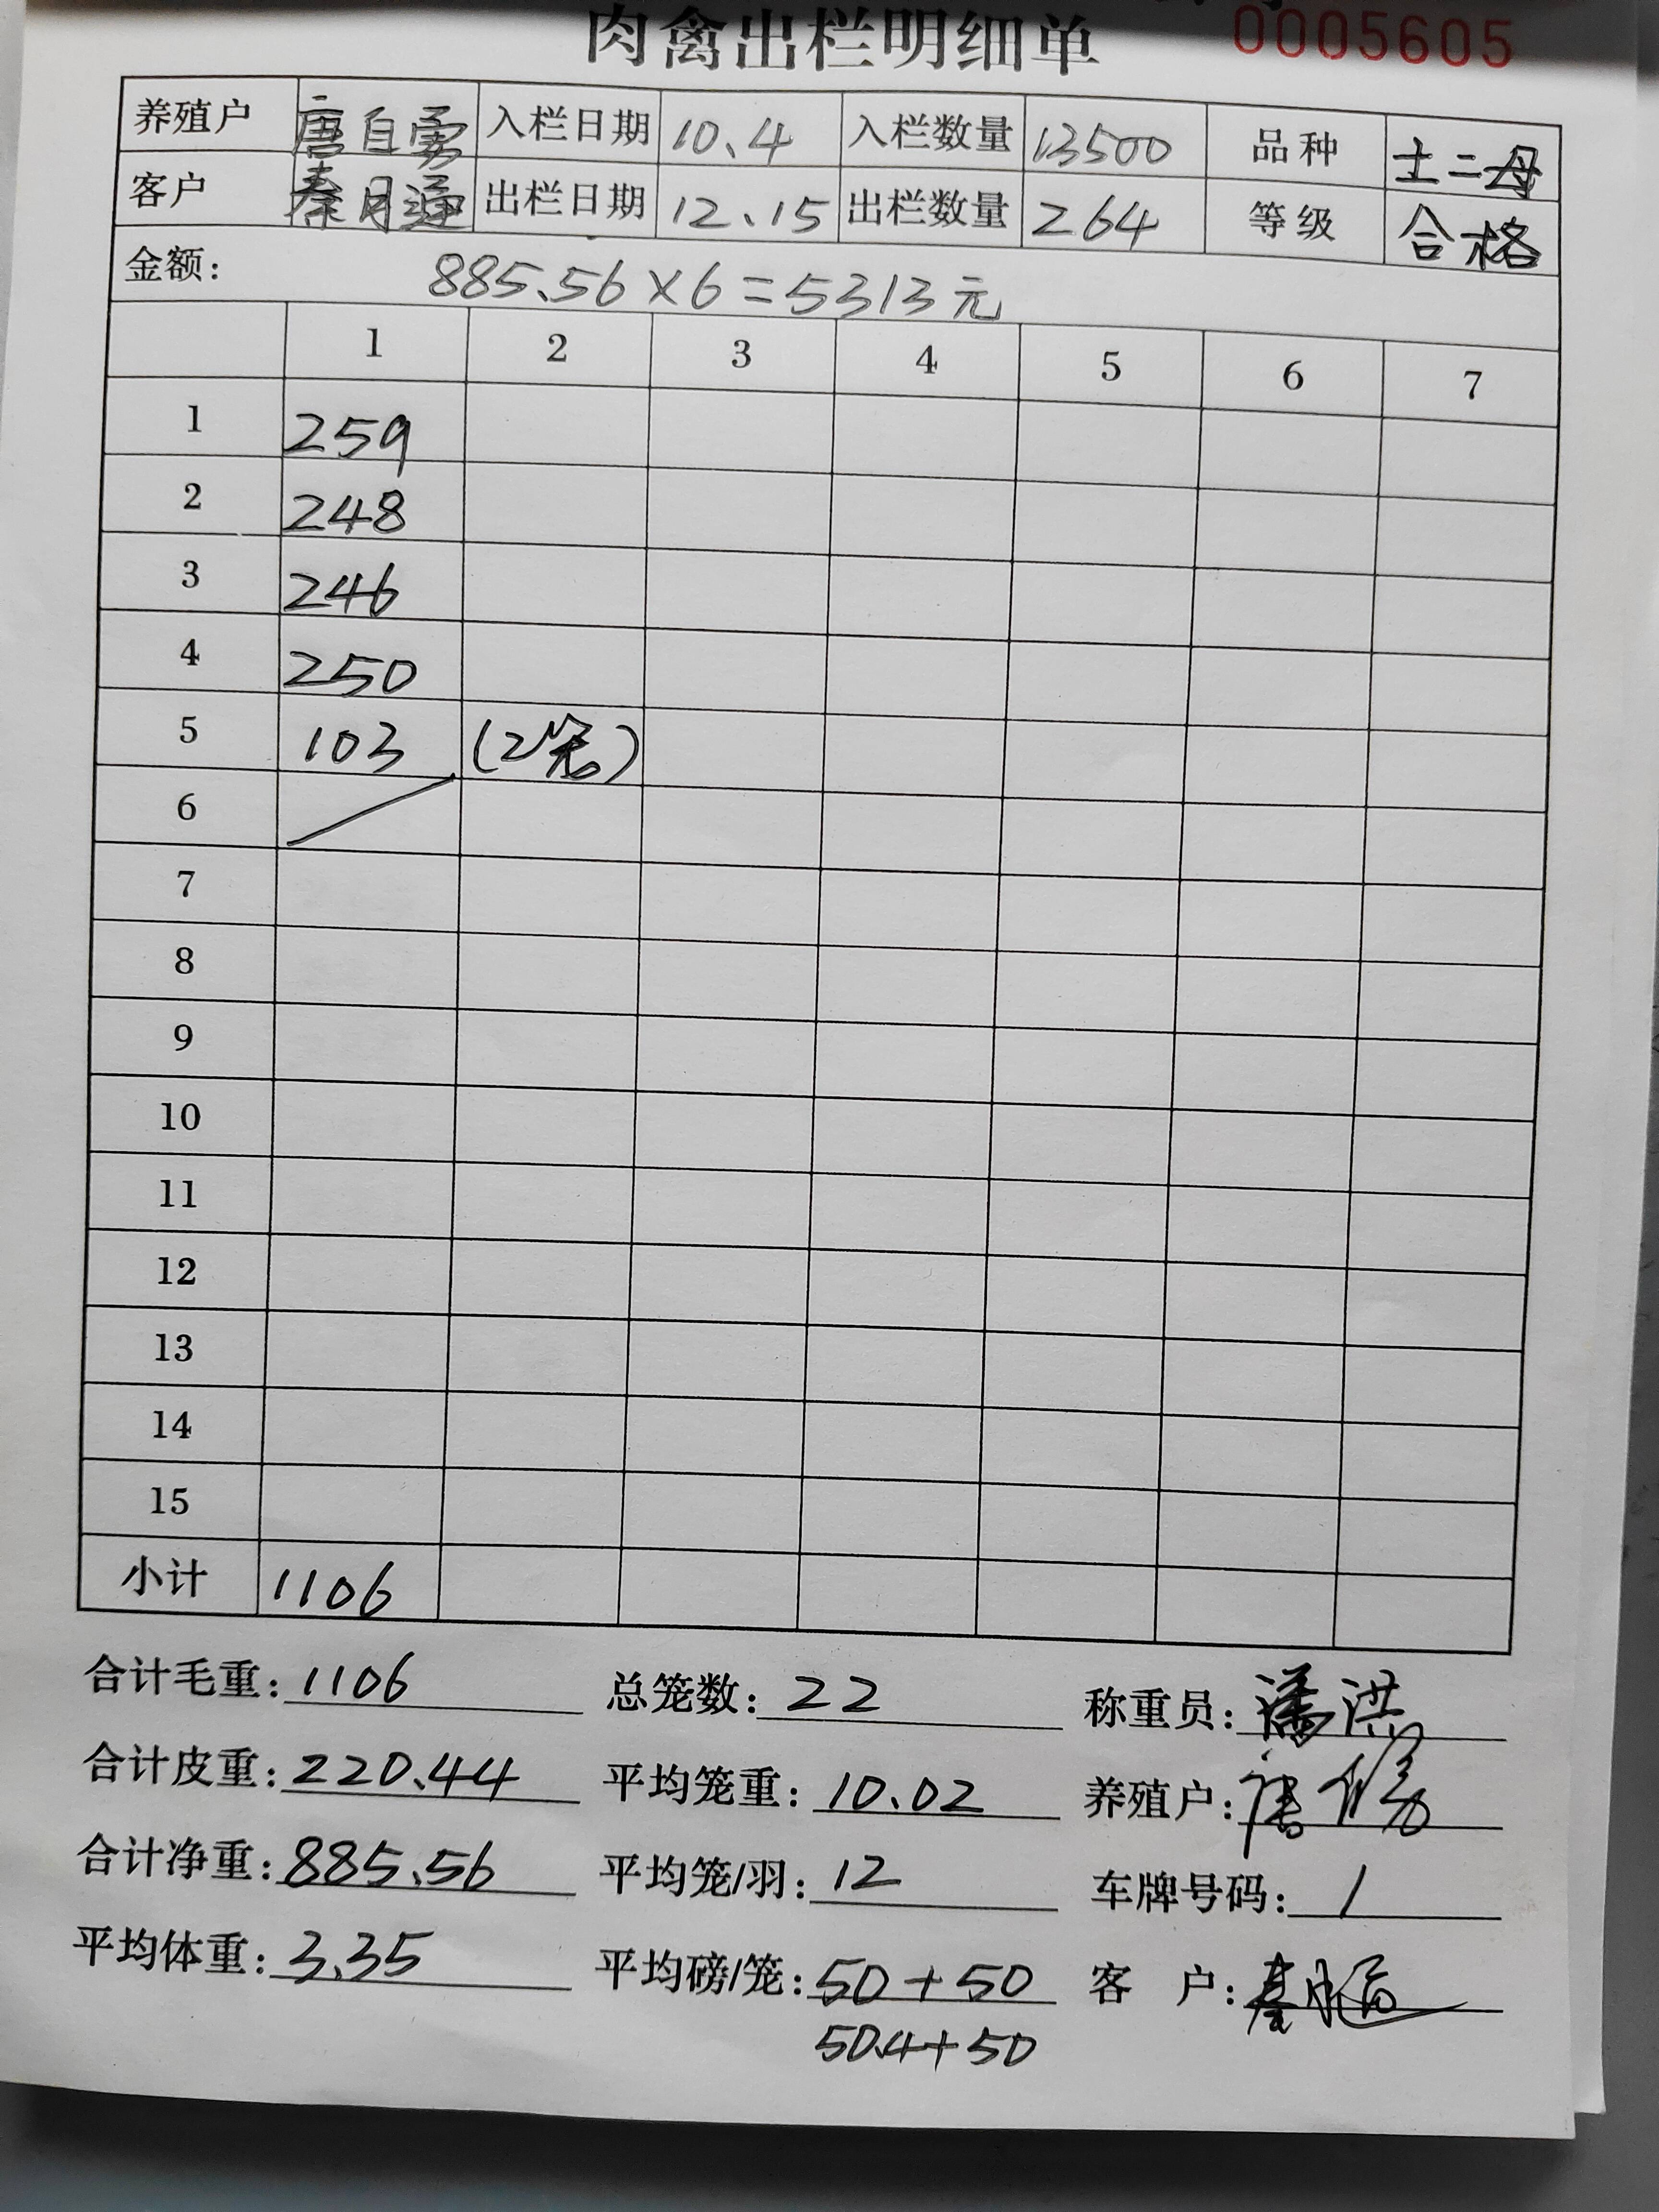 肉禽出栏明细单 0005605
养殖户 唐自勇 入栏日期 10.4 入栏数量 13500 品种 土二母
客户 秦月通 出栏日期 12.15 出栏数量 264 等级 合格
金额: 885.56×6=5313元
1 2 3 4 5 6 7
1 259
2 248
3 246
4 250
5 103 (2笼)
6 /
7
8
9
10
11
12
13
14
15
小计 1106
合计毛重: 1106 总笼数: 22 称重员: 潘洪
合计皮重: 220.44 平均笼重: 10.02 养殖户:
合计净重: 885.56 平均笼/羽: 12 车牌号码: /
平均体重: 3.35 平均磅/笼: 50+50 客 户:
50.4+50